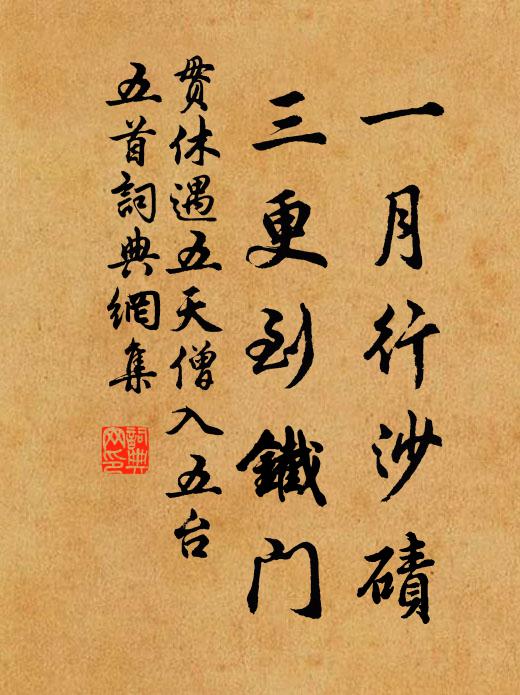 一月行沙磧
三更到鐵门
贯休遇五天僧入五台
五首詞典網集
詞典网印